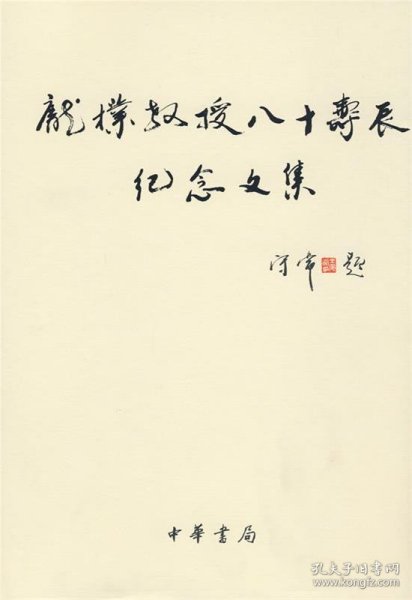 龐樸教授八十壽辰
纪念文集
守常 題
中華書局
孔夫子旧书网
www.kongfz.com